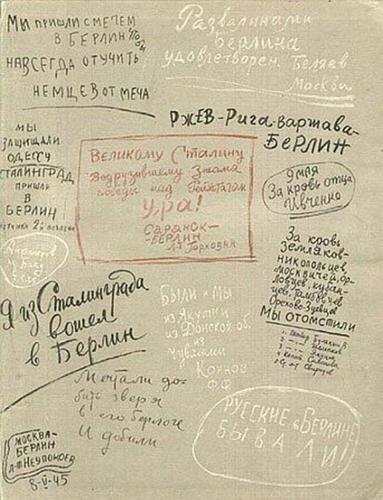 МЫ ПРИШЛИ С МЕЧЕМ
В БЕРЛИН
НАВСЕГДА ОТУЧИТЬ
НЕМЦЕВ ОТ МЕЧА
Развалинами
Берлина
удовлетворен. Беляев
Москва
РЖЕВ-Рига-Варшава-
БЕРЛИН
МЫ
ЗАЩИЩАЛИ
ОДЕССУ
СТАЛИНГРАД
ПРИШЛИ
В
БЕРЛИН
ВЕЛИКОМУ СТАЛИНУ
Водрузившему знамя
победы над Рейхстагом
УРА!
САРАНСК-
БЕРЛИН
Горохкин
9 МАЯ
За кровь отца
Ивченко
За кровь
земляков-
никопольцев,
москвичей, ор-
ловцев, курян-
Орехово-зуевцев
МЫ ОТОМСТИЛИ
Я из Сталинграда
вошел
в Берлин
БЫЛИ и МЫ
из Якутии
из Донской об.
из Чувашии
Коннов
Ф.Ф.
Мечтали до-
бить зверя
в его берлоге
И добили
РУССКИЕ в БЕРЛИНЕ
БЫВАЛИ!
МОСКВА-
БЕРЛИН
Л-Т НЕУПОКОЕВ
8-V-45